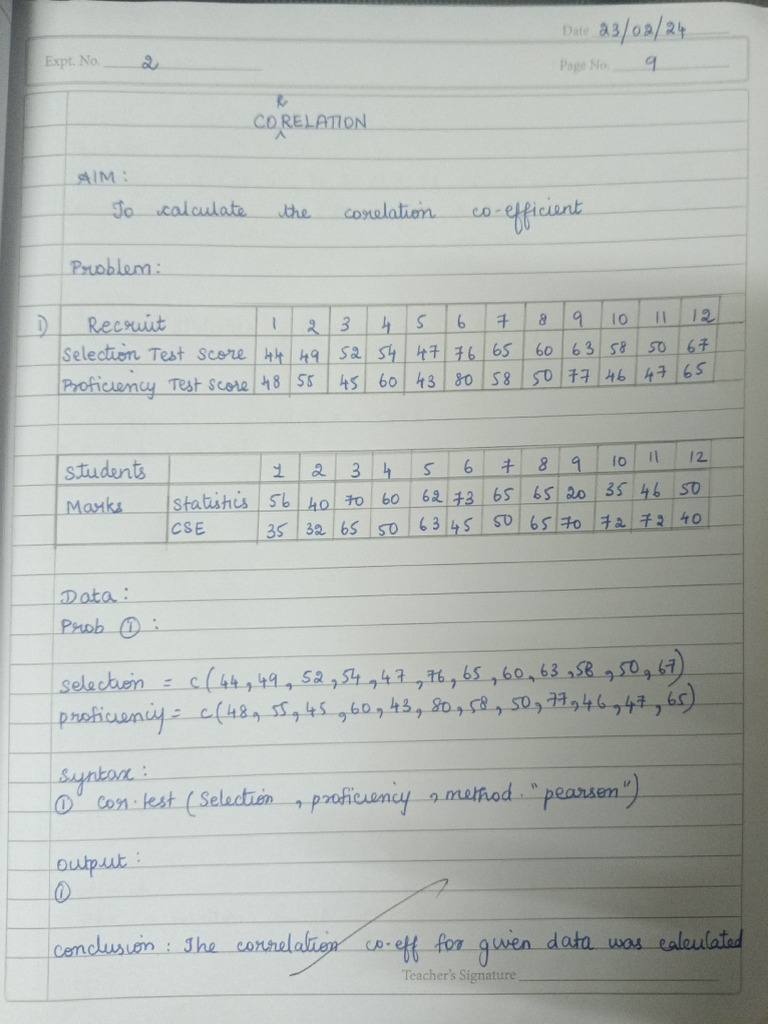 Date 23/02/24
Expt. No. 2
Page No. 9
CORRELATION
AIM:
To calculate the corelation co-efficient
Problem:
1) Recruit 1 2 3 4 5 6 7 8 9 10 11 12
Selection Test Score 44 49 52 54 47 76 65 60 63 58 50 67
Proficiency Test Score 48 55 45 60 43 80 58 50 77 46 47 65
Students 1 2 3 4 5 6 7 8 9 10 11 12
Marks Statistics 56 40 70 60 62 73 65 65 20 35 46 50
CSE 35 32 65 50 63 45 50 65 70 72 72 40
Data:
Prob ①:
selection = c(44, 49, 52, 54, 47, 76, 65, 60, 63, 58, 50, 67)
proficiency = c(48, 55, 45, 60, 43, 80, 58, 50, 77, 46, 47, 65)
Syntax:
① cor.test (Selection, proficiency, method. "pearson")
Output:
①
Conclusion: The correlation co-eff for given data was calculated
Teacher's Signature